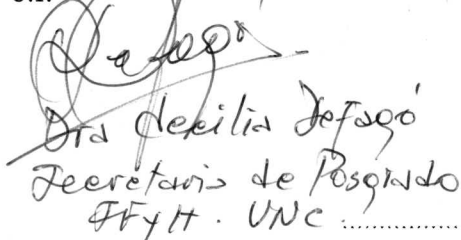 Defagó
Dra Cecilia Defagó
Secretaria de Posgrado
FFyH. UNC ................